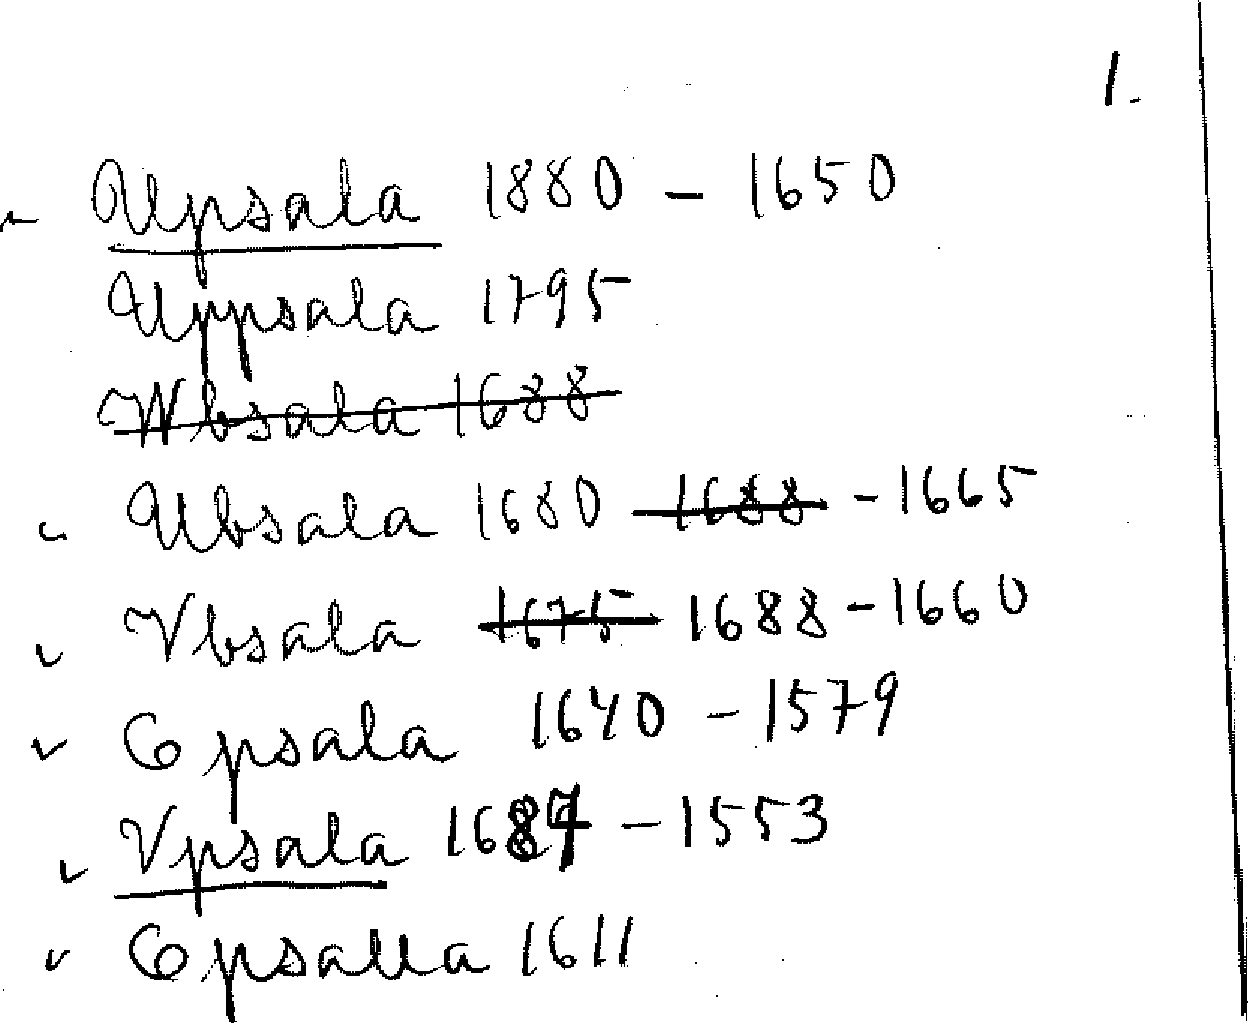 1.
Upsala 1880 - 1650
Uppsala 1795
Wbsala 1688
Ubsala 1680 1688 - 1665
Vbsala 1675 1688 - 1660
Opsala 1640 - 1579
Vpsala 1687 - 1553
Opsalla 1611